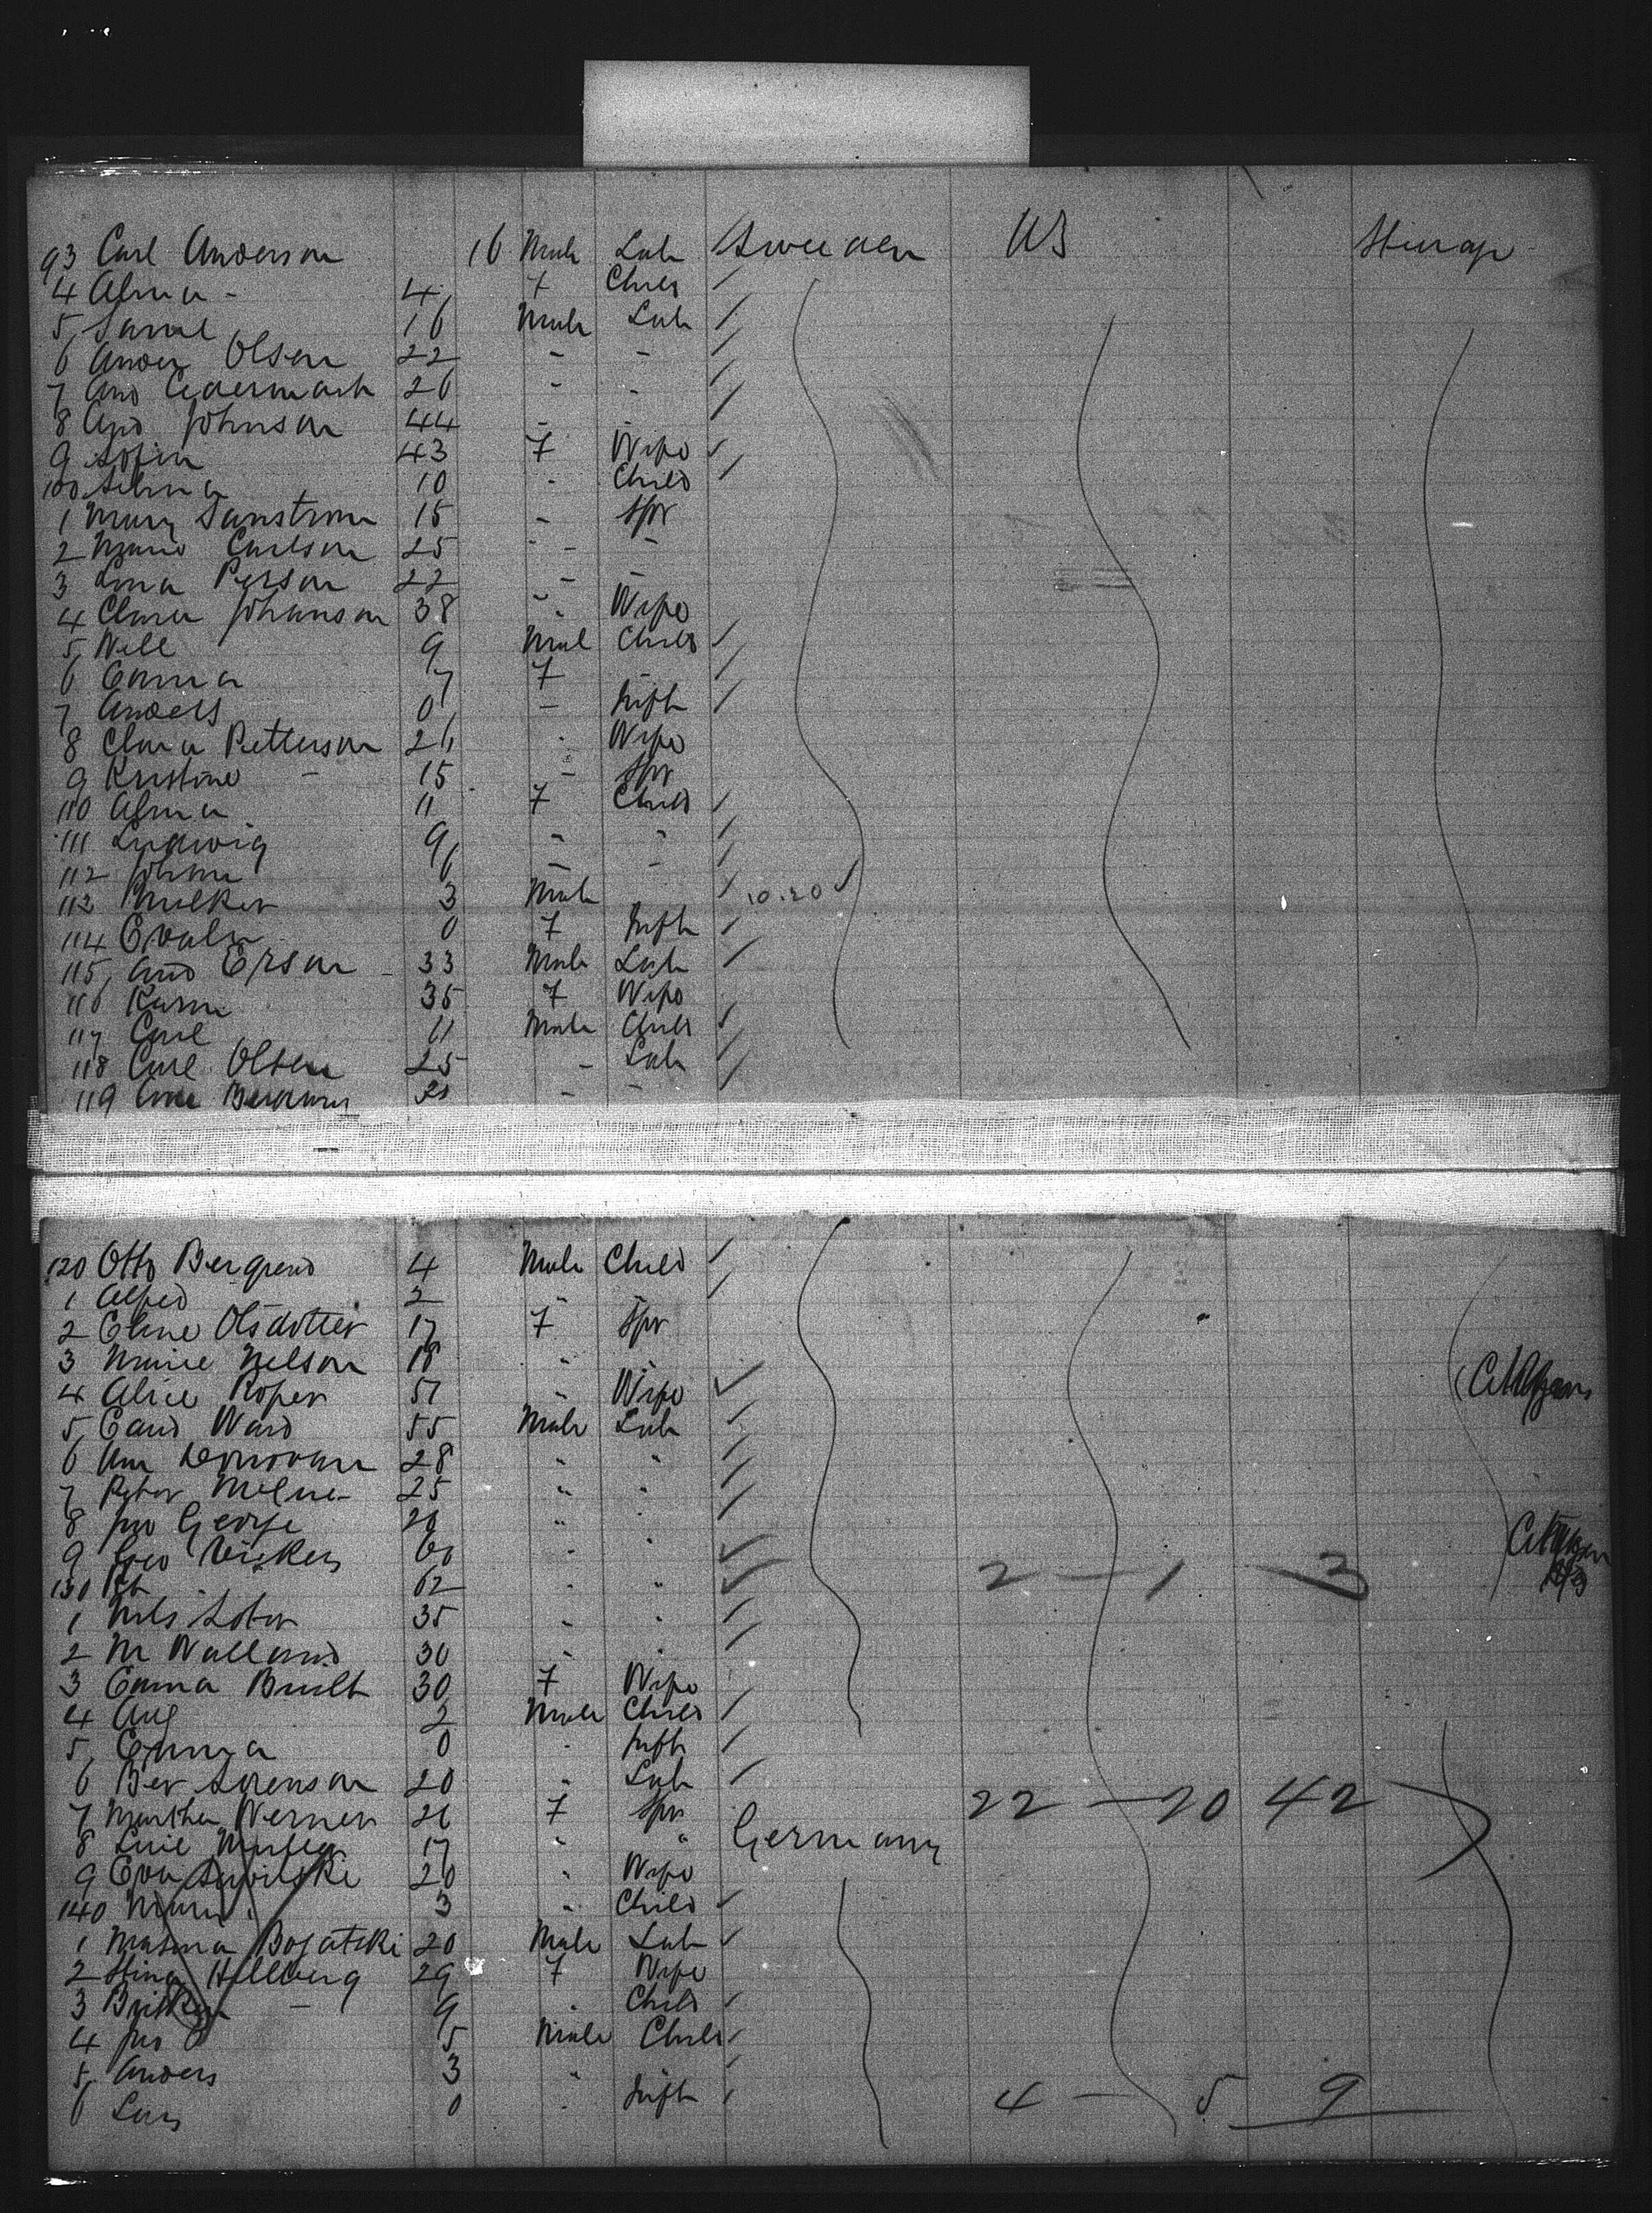 93 Carl Anderson 16 Male Lab Sweden US Steerage
4 Alma - 4 F Child
5 Samel 16 Male Lab
6 Ander Olsen 22 - -
7 And Cedermark 26 - -
8 And Johnson 44 - -
9 Sofia 43 F Wife
100 Selma 10 - Child
1 Mary Sanstrom 15 - Spr
2 Marie Carlson 25 - -
3 Lina Person 22 - -
4 Clara Johanson 38 - Wife
5 Nell 9 Male Child
6 Emma 7 F -
7 Anders 0 - Inft
8 Clara Petterson 26 - Wife
9 Kristine - 15 - Spr
110 Alma 11 F Child
111 Ludwig 9 - -
112 Johan 6 - -
112 3 Male 10.20
114 Evalin 0 F Inft
115 And Erson 33 Male Lab
116 Karin 35 F Wife
117 Carl 11 Male Child
118 Carl Olsen 25 - Lab
119 - -
120 Otto Bergrend 4 Male Child
1 Alfred 2 " "
2 Eline Olsdotter 17 F Spr
3 Marie Nelson 18 " "
4 Alice Roper 57 " Wife Citizen
5 Ward 55 Male Lab
6 Donovan 28 " "
7 Peter Milne 25 " "
8 Jno George 26 " "
9 Geo Vickers 60 " " Citizen
130 Rt 62 " " 2 - 1 - 3
1 Nils 35 " "
2 M Walland 30 " "
3 Emma Built 30 F Wife
4 Aug 2 Male Child
5 Emma 0 " Inft
6 Ber Sorenson 20 " Lab
7 Martha Werner 26 F Spr 22 - 20 42
8 17 " " Germany
9 Eva 20 " Wife
140 3 " Child
1 Bogatski 20 Male Lab
2 Stina Hellberg 29 F Wife
3 - 9 " Child
4 Jno 5 Male Child
5 Anders 3 "
6 Lars 0 " Inft 4 - 5 9